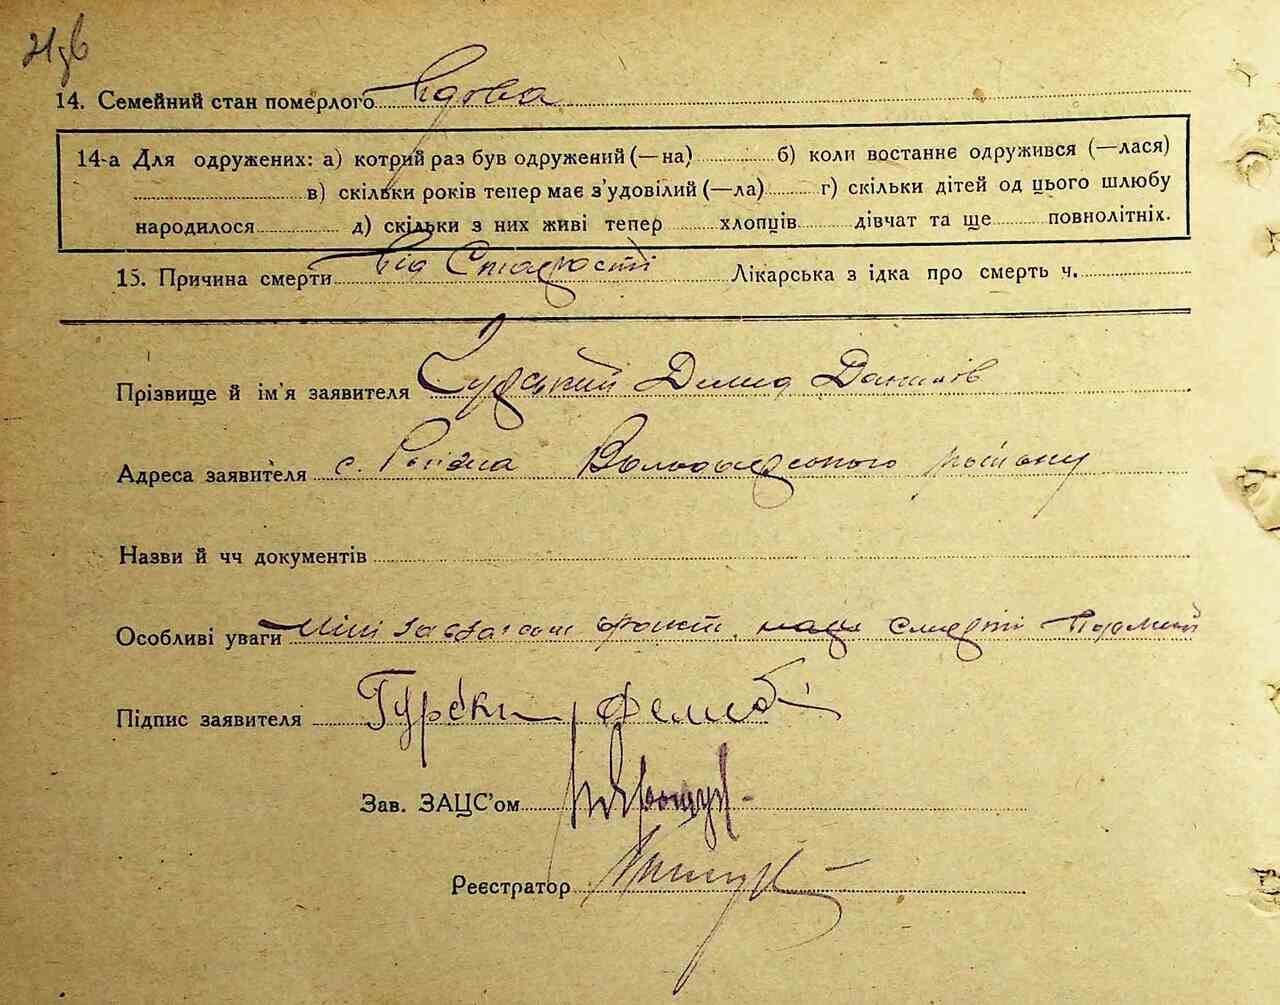 14. Семейний стан померлого Вдова
14-а Для одружених: а) котрий раз був одружений (—на) б) коли востаннє одружився (—лася)
в) скільки років тепер має з'удовілий (—ла) г) скільки дітей од цього шлюбу
народилося д) скільки з них живі тепер хлопців дівчат та ще повнолітніх.
15. Причина смерти від Старості Лікарська з ідка про смерть ч.
Прізвище й ім'я заявителя Гурський Демид Данилів
Адреса заявителя с. Володарського району
Назви й чч документів
Особливі уваги смерті
Підпис заявителя
Зав. ЗАЦС'ом
Реєстратор